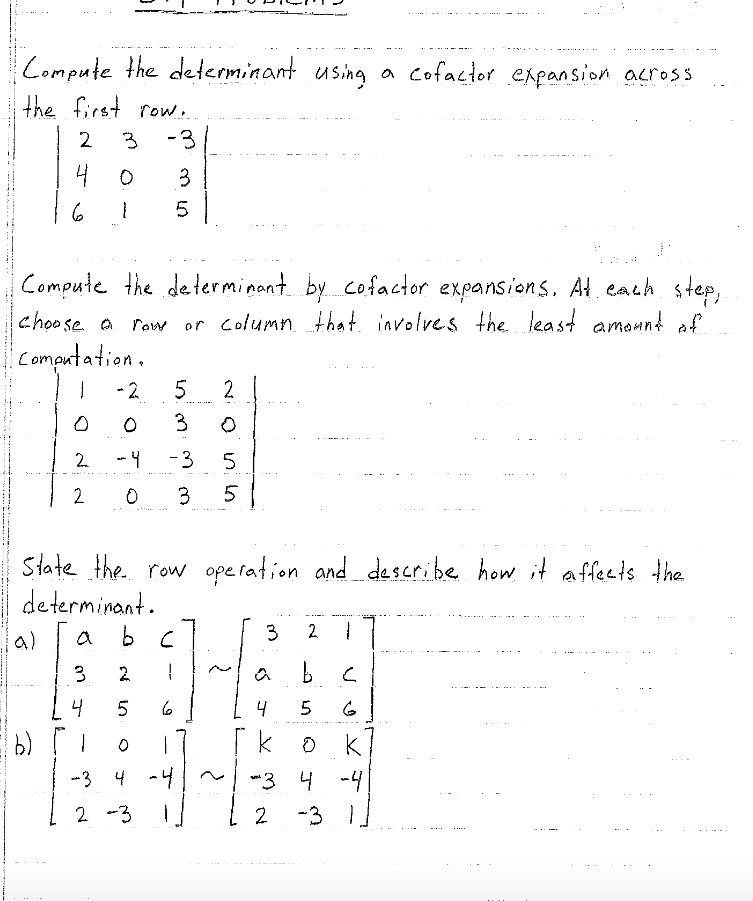 Compute the determinant using a cofactor expansion across
the first row.
2 3 -3
4 0 3
6 1 5
Compute the determinant by cofactor expansions. At each step,
choose a row or column that involves the least amount of
computation.
1 -2 5 2
0 0 3 0
2 -4 -3 5
2 0 3 5
State the row operation and describe how it affects the
determinant.
a) [a b c] [3 2 1]
[3 2 1] ~ [a b c]
[4 5 6] [4 5 6]
b) [1 0 1] [k 0 k]
[-3 4 -4] ~ [-3 4 -4]
[2 -3 1] [2 -3 1]